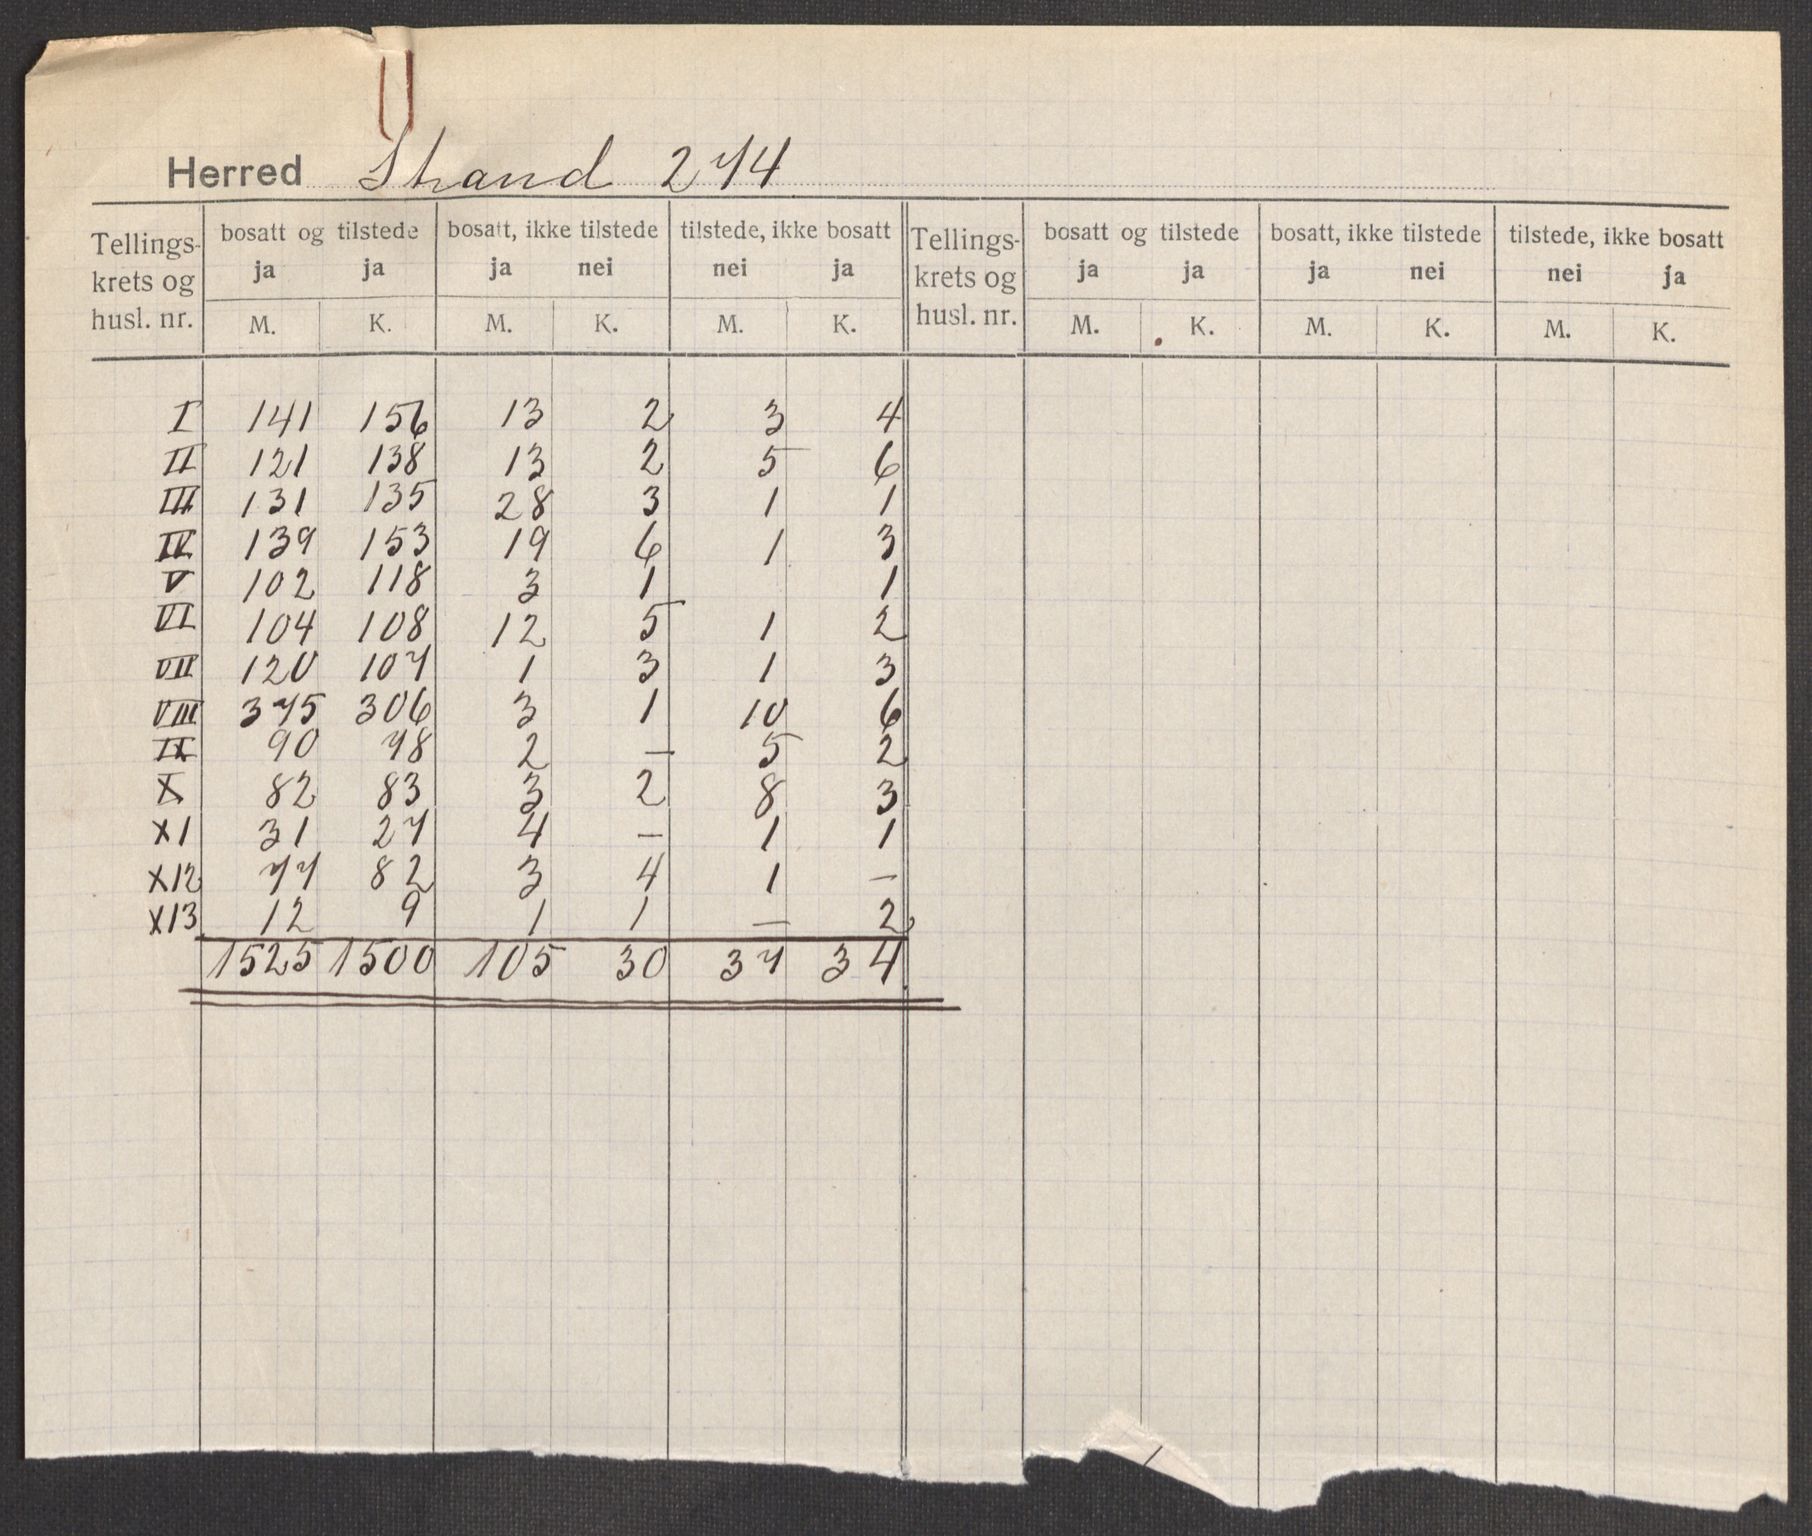 Herred Strand 274
Tellings- bosatt og tilstede bosatt, ikke tilstede tilstede, ikke bosatt Tellings- bosatt og tilstede bosatt, ikke tilstede tilstede, ikke bosatt
krets og ja ja ja nei nei ja krets og ja ja ja nei nei ja
husl. nr. M. K. M. K. M. K. husl. nr. M. K. M. K. M. K.
I 141 156 13 2 3 4
II 121 138 13 2 5 6
III 131 135 28 3 1 1
IV 139 153 19 6 1 3
V 102 118 3 1 1
VI 104 108 12 5 1 2
VII 120 107 1 3 1 3
VIII 375 306 3 1 10 6
IX 90 78 2 — 5 2
X 82 83 3 2 8 3
X1 31 27 4 — 1 1
X12 77 82 3 4 1 —
X13 12 9 1 1 — 2
1525 1500 105 30 37 34